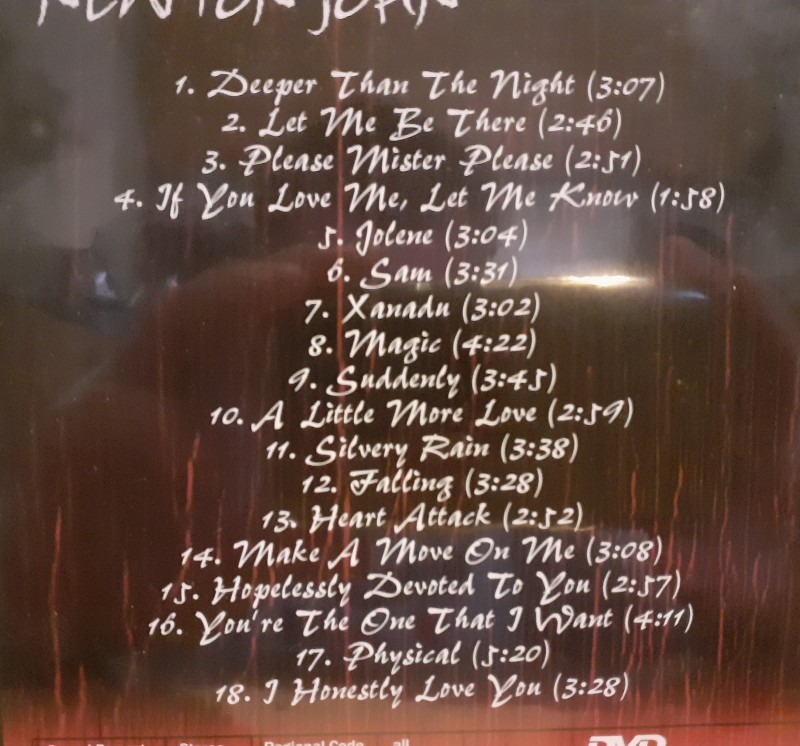 NEWTON JOHN
1. Deeper Than The Night (3:07)
2. Let Me Be There (2:46)
3. Please Mister Please (2:51)
4. If You Love Me, Let Me Know (1:58)
5. Jolene (3:04)
6. Sam (3:31)
7. Xanadu (3:02)
8. Magic (4:22)
9. Suddenly (3:45)
10. A Little More Love (2:59)
11. Silvery Rain (3:38)
12. Falling (3:28)
13. Heart Attack (2:52)
14. Make A Move On Me (3:08)
15. Hopelessly Devoted To You (2:57)
16. You're The One That I Want (4:11)
17. Physical (5:20)
18. I Honestly Love You (3:28)
Regional Code all